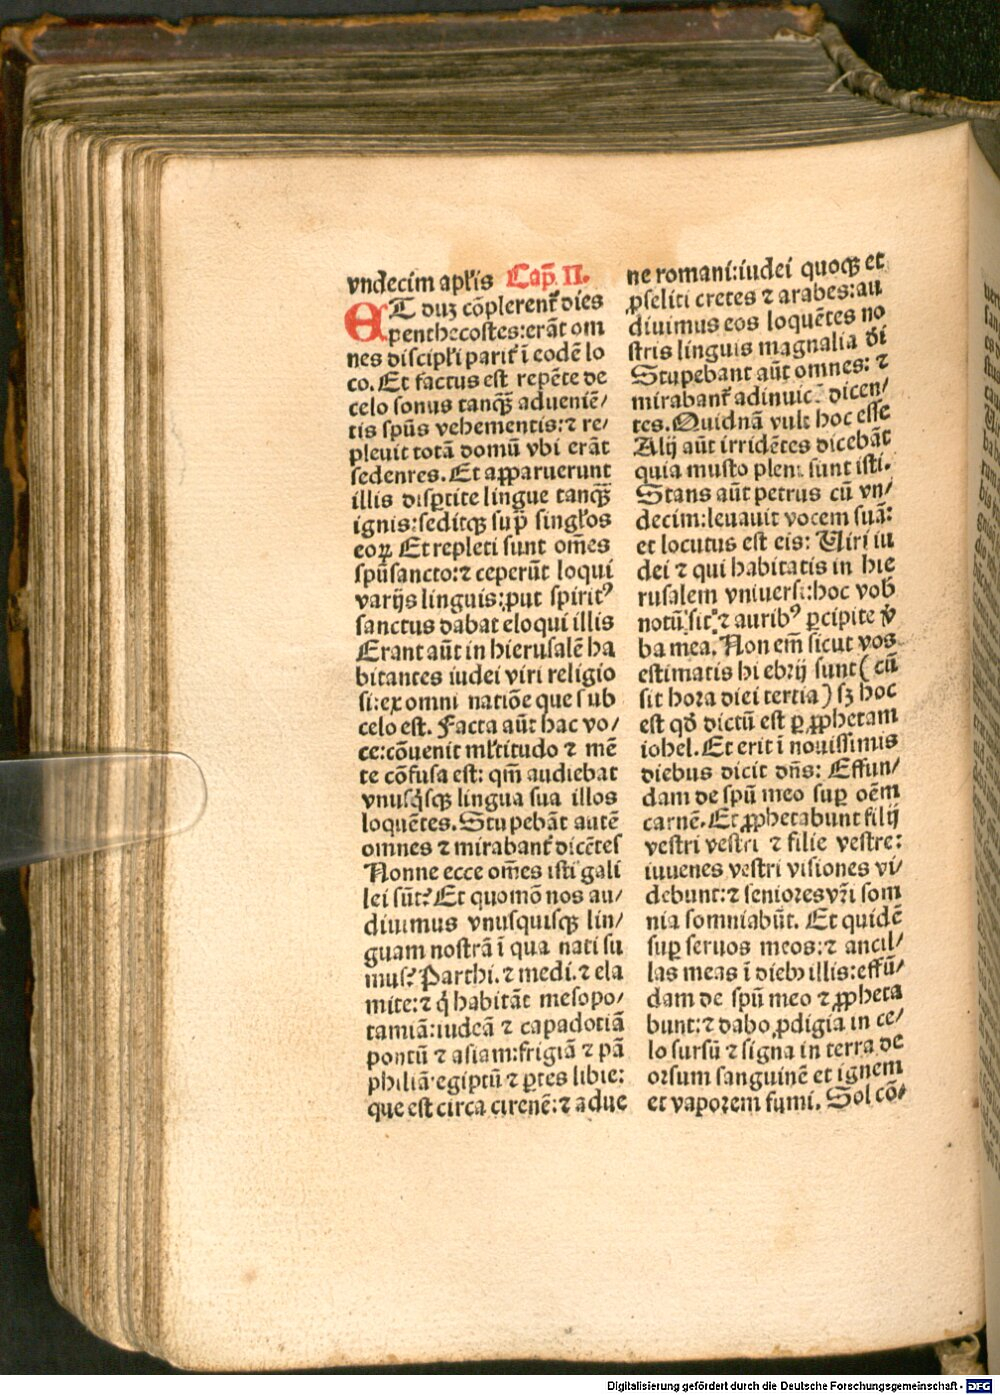 vndecim apl'is Cap̄. II.
ET duꝫ cōplerent᷑ dies
penthecostes:erāt om
nes discipl'i parit᷑ ī eodē lo
co. Et factus est repēte de
celo sonus tanqꝫ̄ adueniē/
tis spūs vehementis:⁊ re/
pleuit totā domū vbi erāt
sedenres. Et apparuerunt
illis disꝑtite lingue tanqꝫ̄
ignis:seditqꝫ sup̄ singl'os
eoꝝ Et repleti sunt om̄es
spūsancto:⁊ ceperūt loqui
varijs linguis:ꝓut spiritꝰ
sanctus dabat eloqui illis
Erant aūt in hierusalē ha
bitantes iudei viri religio
si:ex omni natiōe que sub
celo est. Facta aūt hac vo/
ce:cōuenit ml'titudo ⁊ mē
te cōfusa est: qm̄ audiebat
vnusq̇sqꝫ lingua sua illos
loquētes. Stupebāt autē
omnes ⁊ mirabant᷑ dicētes
Nonne ecce om̄es isti gali
lei sūt? Et quomō nos au/
diuimus vnusquisqꝫ lin/
guam nostrā ī qua nati su
mus? Parthi. ⁊ medi. ⁊ ela
mite:⁊ q̇ habitāt mesopo/
tamiā:iudeā ⁊ capadotiā
pontū ⁊ asiam:frigiā ⁊ pā
philiā·egiptū ⁊ ꝑtes libie:
que est circa cirenē:⁊ adue
ne romani:iudei quoqꝫ et
ꝓseliti cretes ⁊ arabes:au
diuimus eos loquētes no
stris linguis magnalia dī
Stupebant aūt omnes: ⁊
mirabant᷑ adinuic̄ dicen/
tes. Quidnā vult hoc esse
Alij aūt irridētes dicebāt
quia musto pleni sunt isti.
Stans aūt petrus cū vn/
decim:leuauit vocem suā:
et locutus est eis: Viri iu
dei ⁊ qui habitatis in hie
rusalem vniuersi:hoc vob̄
notū sit:⁊ auribꝰ ꝑcipite v̄
ba mea. Non em̄ sicut vos
estimatis hi ebrij sunt (cū
sit hora diei tertia) sꝫ hoc
est qd̄ dictū est ꝑ ꝓphetam
iohel. Et erit ī nouissimus
diebus dicit dn̄s: Effun/
dam de spū meo suꝑ oēm
carnē. Et ꝓphetabunt filij
vestri vestri ⁊ filie vestre:
iuuenes vestri visiones vi/
debunt:⁊ seniores vr̄i som
nia somniabūt. Et quidē
suꝑ seruos meos:⁊ ancil/
las meas ī dieb₉ illis:effū/
dam de spū meo ⁊ ꝓpheta
bunt:⁊ dabo ꝓdigia in ce/
lo sursū ⁊ signa in terra de
orsum sanguinē et ignem
et vaporem fumi. Sol cō/
Digitalisierung gefördert durch die Deutsche Forschungsgemeinschaft - DFG